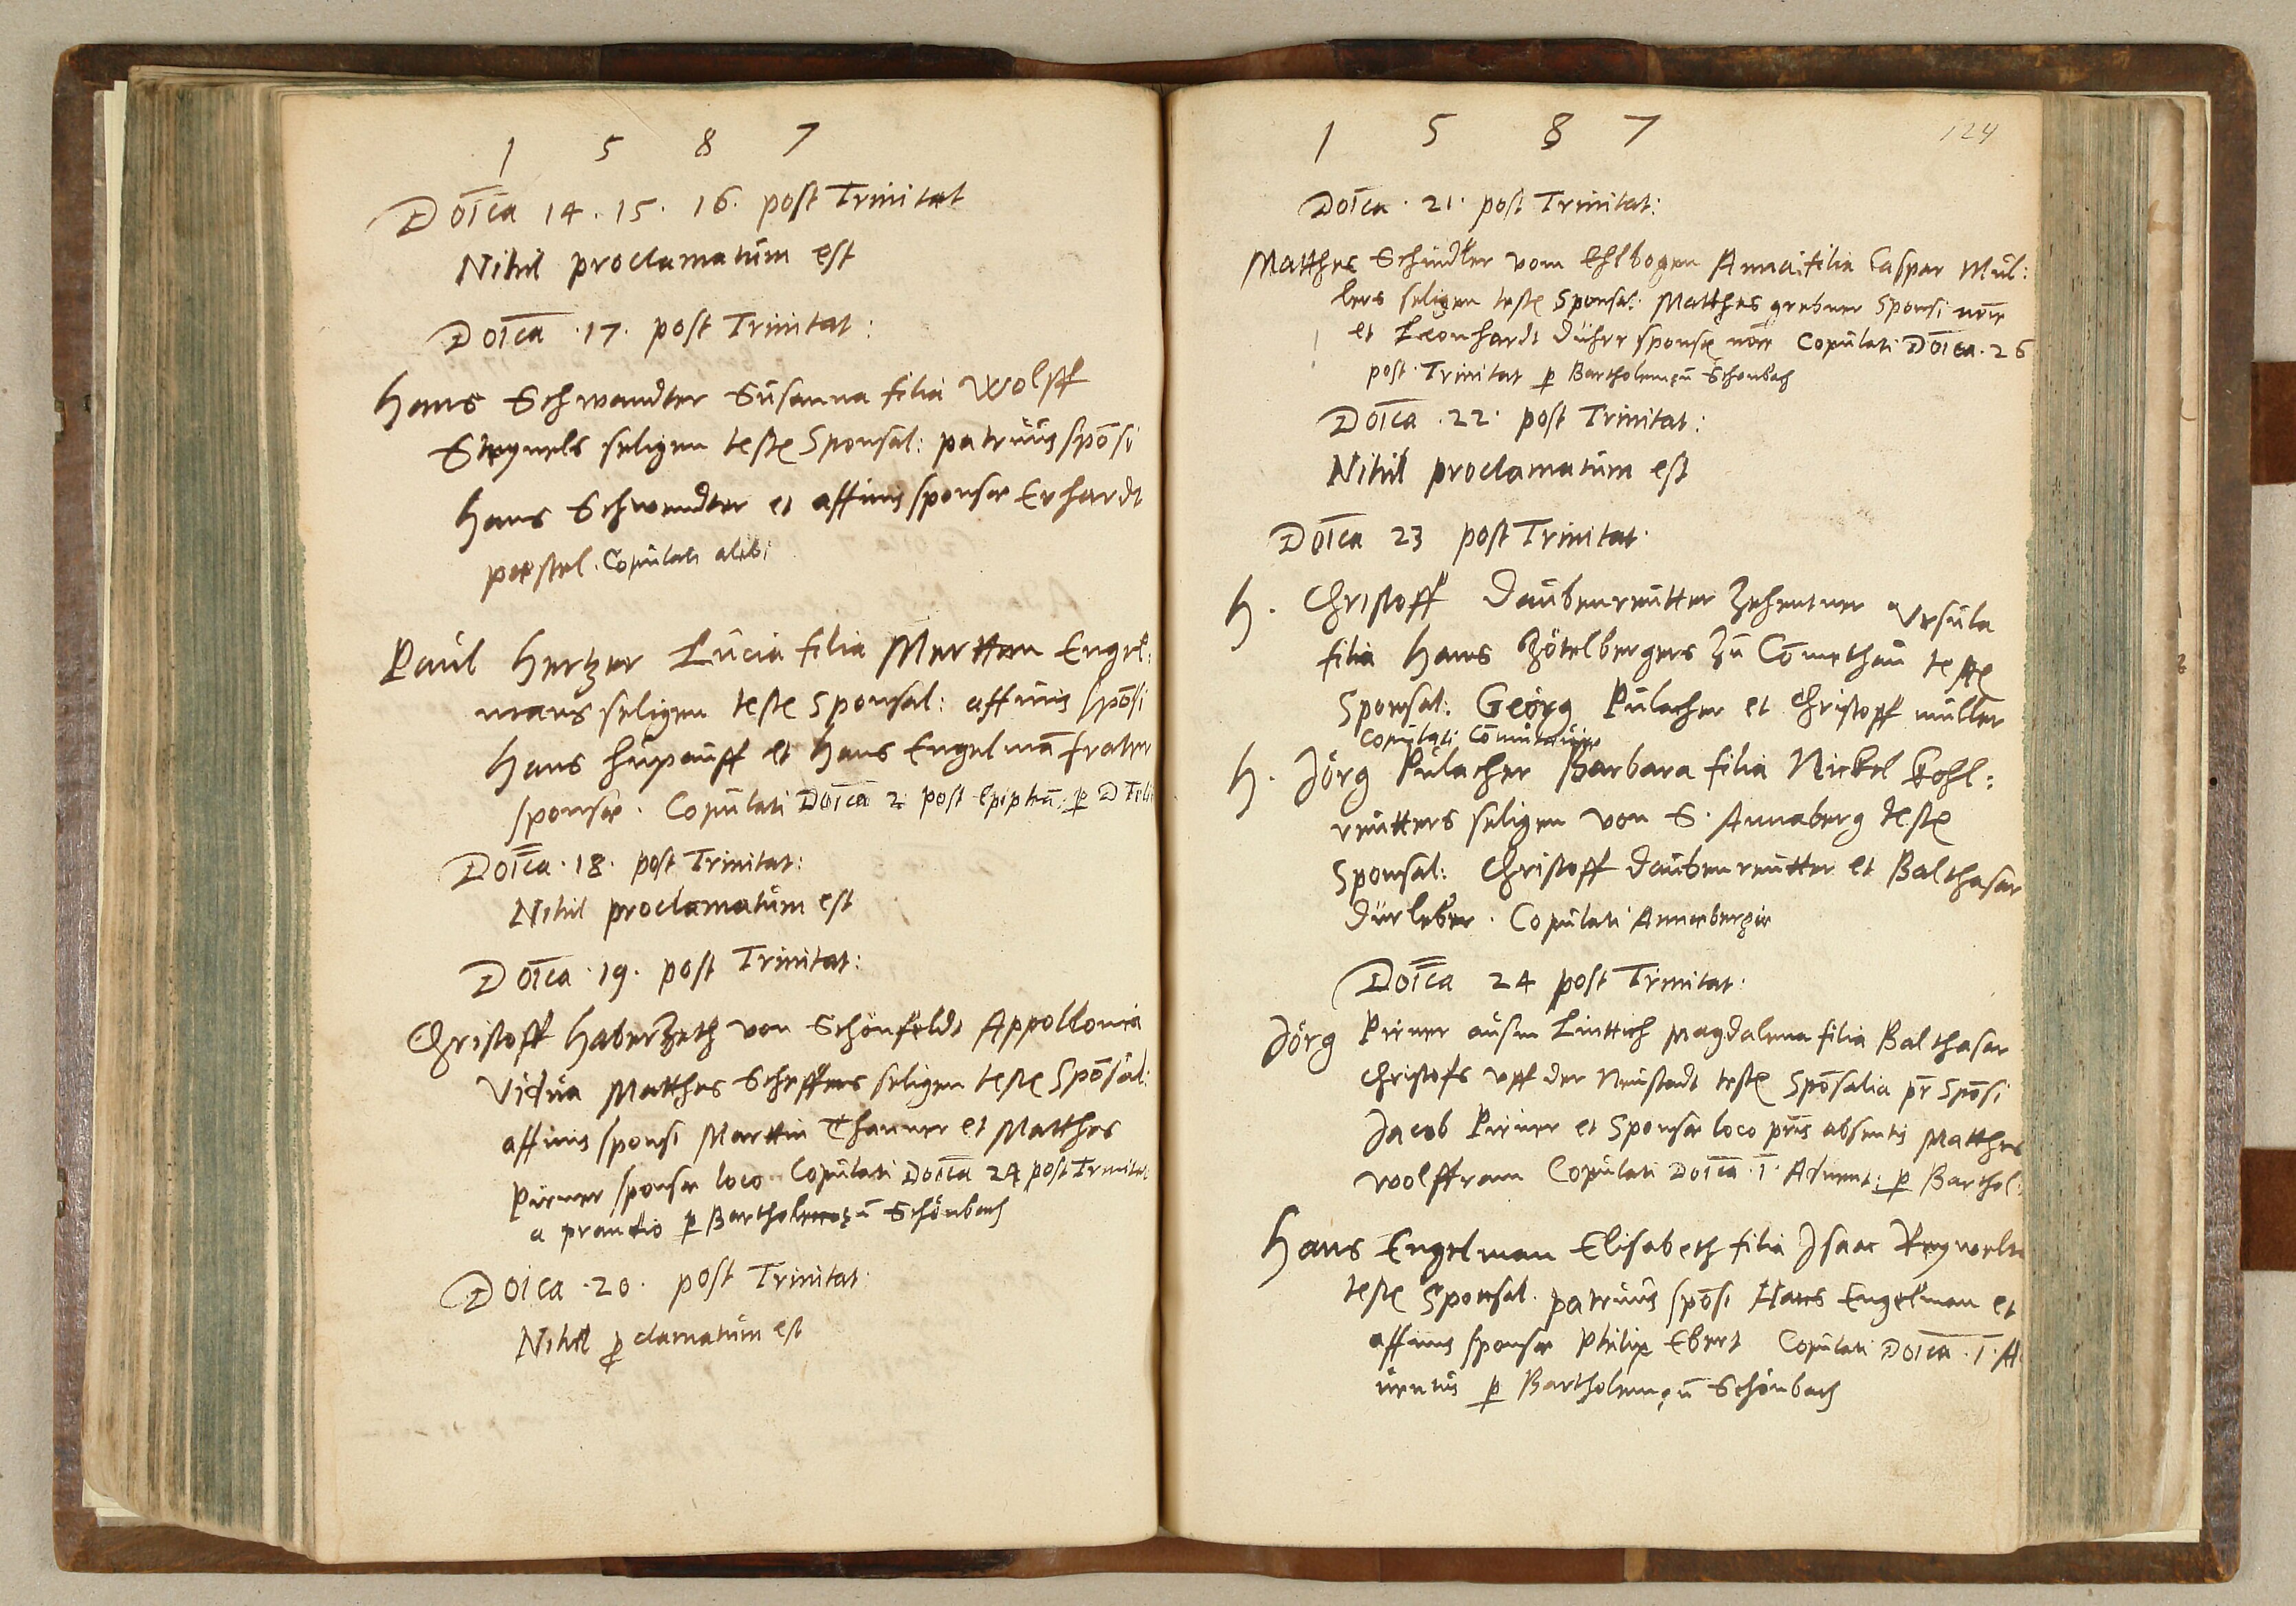 1 5 8 7
Doīca 14. 15. 16. post Trinitat
Nihil proclamatum est
Doīca .17. post Trinitat:
Hans Schwandter Susanna filia Wolff
Steynels seligen testes Sponsal: patruus spōsi
Hans Schwendter et affinis sponsae Erhardt
poestel. Copulati alibi
Paul Hertzer Lucia filia Mertten Engel:
mans seligen testes Sponsal: affinis spōsi
Hans et Hans Engelmā frater
sponsae. Copulati Doīca 2 post Epiphā: p D
Doīca .18. post Trinitat:
Nihil proclamatum est
Doīca .19. post Trinitat:
Christoff Haberzeth von Schönfeldt Appollonia
Vidua Matthes Scheffers seligen testes Spōsal:
affinis sponsi Marttin Thanner et Matthes
Pirner sponsae loco. Copulati Doīca 24 post Trinitat:
a prandio p Bartholemęū Schönbach
Doica .20. post Trinitat:
Nihil pclamatum est
1 5 8 7
124
Doīca .21. post Trinitat:
Matthes Schindler vom Ehlbogen Anna filia Caspar Mül:
lers seligen testes Sponsal: Matthes grebner Sponsi noīe
et Leonhardt dührr sponsę noīe Copulati Doīca .26
post Trinitat p Bartholemęū Schonbach
Doīca .22. post Trinitat:
Nihil proclamatum est
Doīca 23 post Trinitat.
H. Christoff Daubenreutter Zehentner Ursula
filia Hans Zötelbergers zu Comethau testes
Sponsal: Georg Pulacher et Christoff müller
Copulati
H. Jörg Pulacher Barbara filia Nickel Kohl:
reutters seligen von S. Annaberg testes
Sponsal: Christoff Daubenreutter et Balthasar
Dürleber. Copulati Annaebergae
Doīca 24 post Trinitat:
Jörg Pirner ausm Linttich Magdalena filia Balthasar
Christofs uff der Neustadt testes Spōsalia pr Spōsi
Jacob Pirner et Sponsae loco pris absentis Matthes
Wolffram Copulati Doīca .1. Advent: p Barthol:
Hans Engelman Elisabeth filia Isaac
testes Sponsal. patruus spōsi Hans Engelman et
affinis sponsae Philip Ebert Copulati Doīca .1. Ad
uentus p Bartholemęū Schönbach